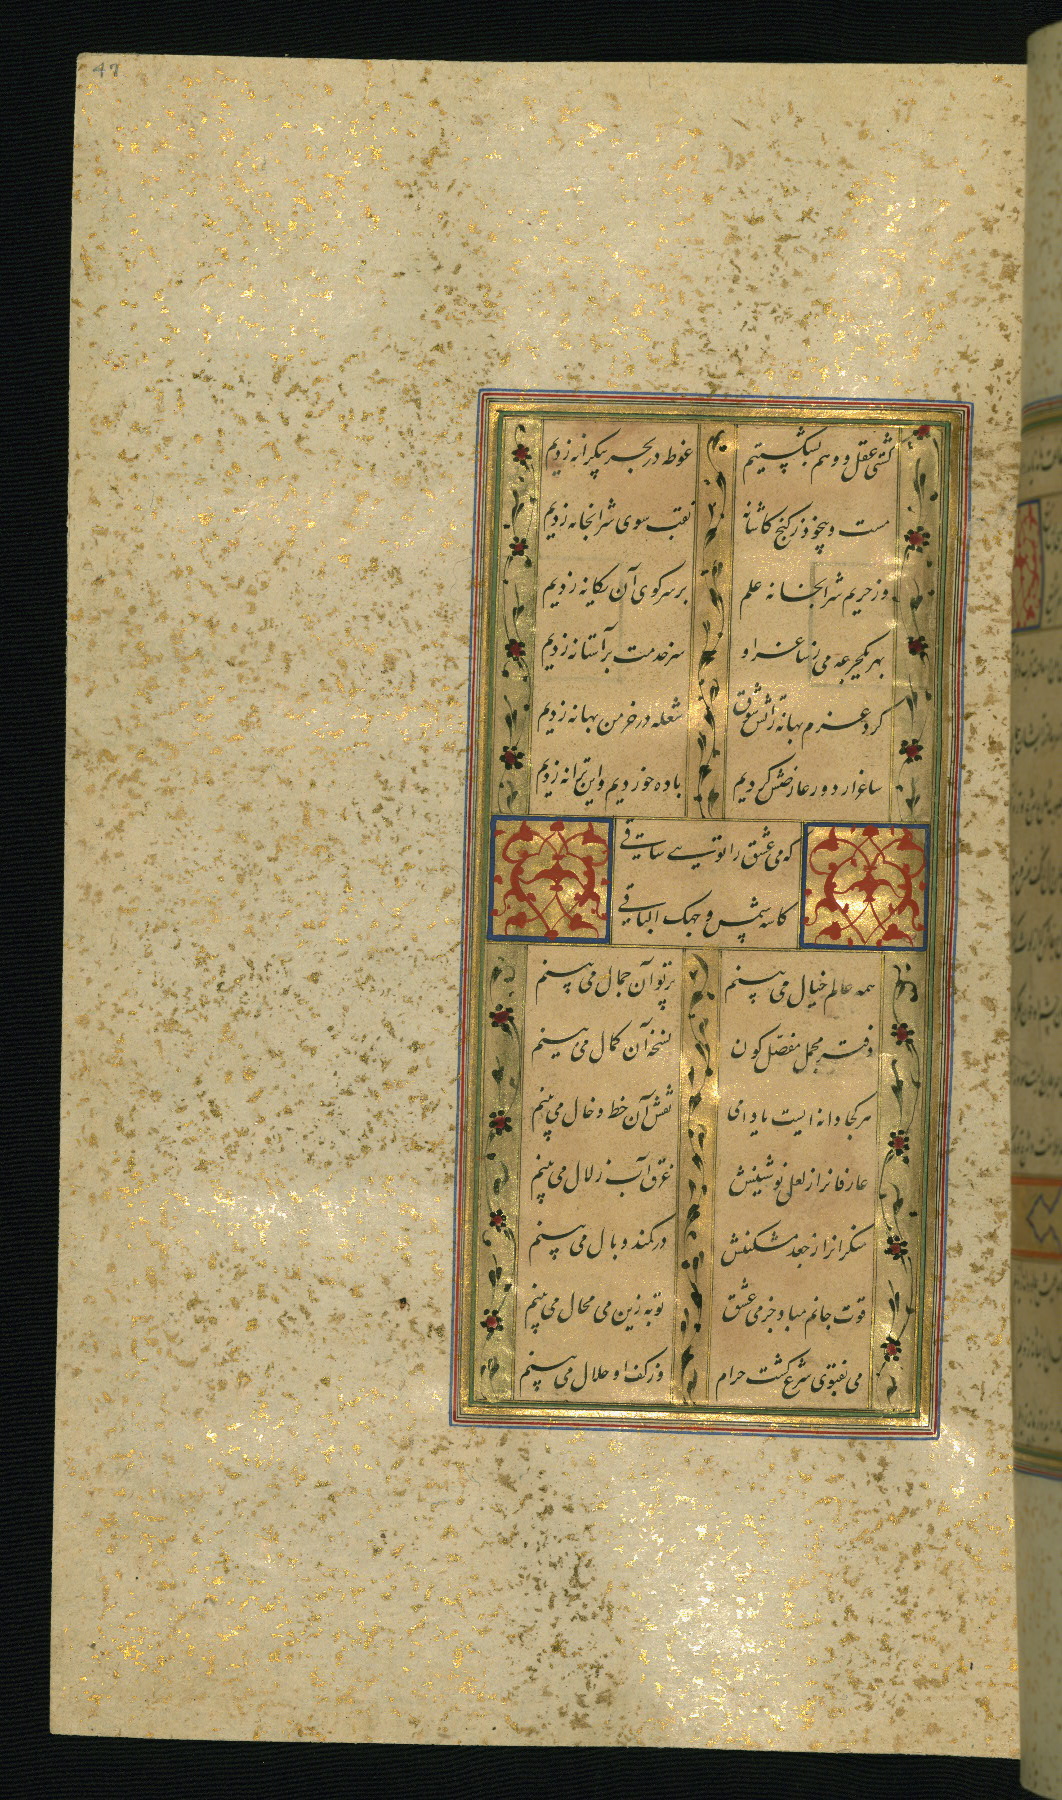 47
کشتی عقل و وهم بشکستیم
غوطه در بحر بیکرانه زدیم
مست و بیخود ز کنج کاشانه
نقب سوی شرابخانه زدیم
وز حریم شرابخانه علم
بر سر کوی آن یکانه زدیم
بهر یکجرعه می ز ساغر او
سر خدمت بر آستانه زدیم
کرد عزم بهانه زآتش شوق
شعله در خرمن بهانه زدیم
ساغر از دور عارضش کردیم
باده خوردیم و این ترانه زدیم
که می عشق را تویی ساقی
کاسه شمس وجهک الباقی
همه عالم خیال می بینم
پرتو آن جمال می بینم
دفتر مجمل مفصل کون
نسخه آن کمال می بینم
هر کجا دانه ایست یا دامی
نقش آن خط و خال می بینم
عارفانرا ز لعل نوشینش
غرق آب زلال می بینم
منکرانرا ز جعد مشکینش
در کمند وبال می بینم
قوت جانم مباد جز می عشق
توبه زین می محال می بینم
می بفتوی شرع گشت حرام
وز کف او حلال می بینم